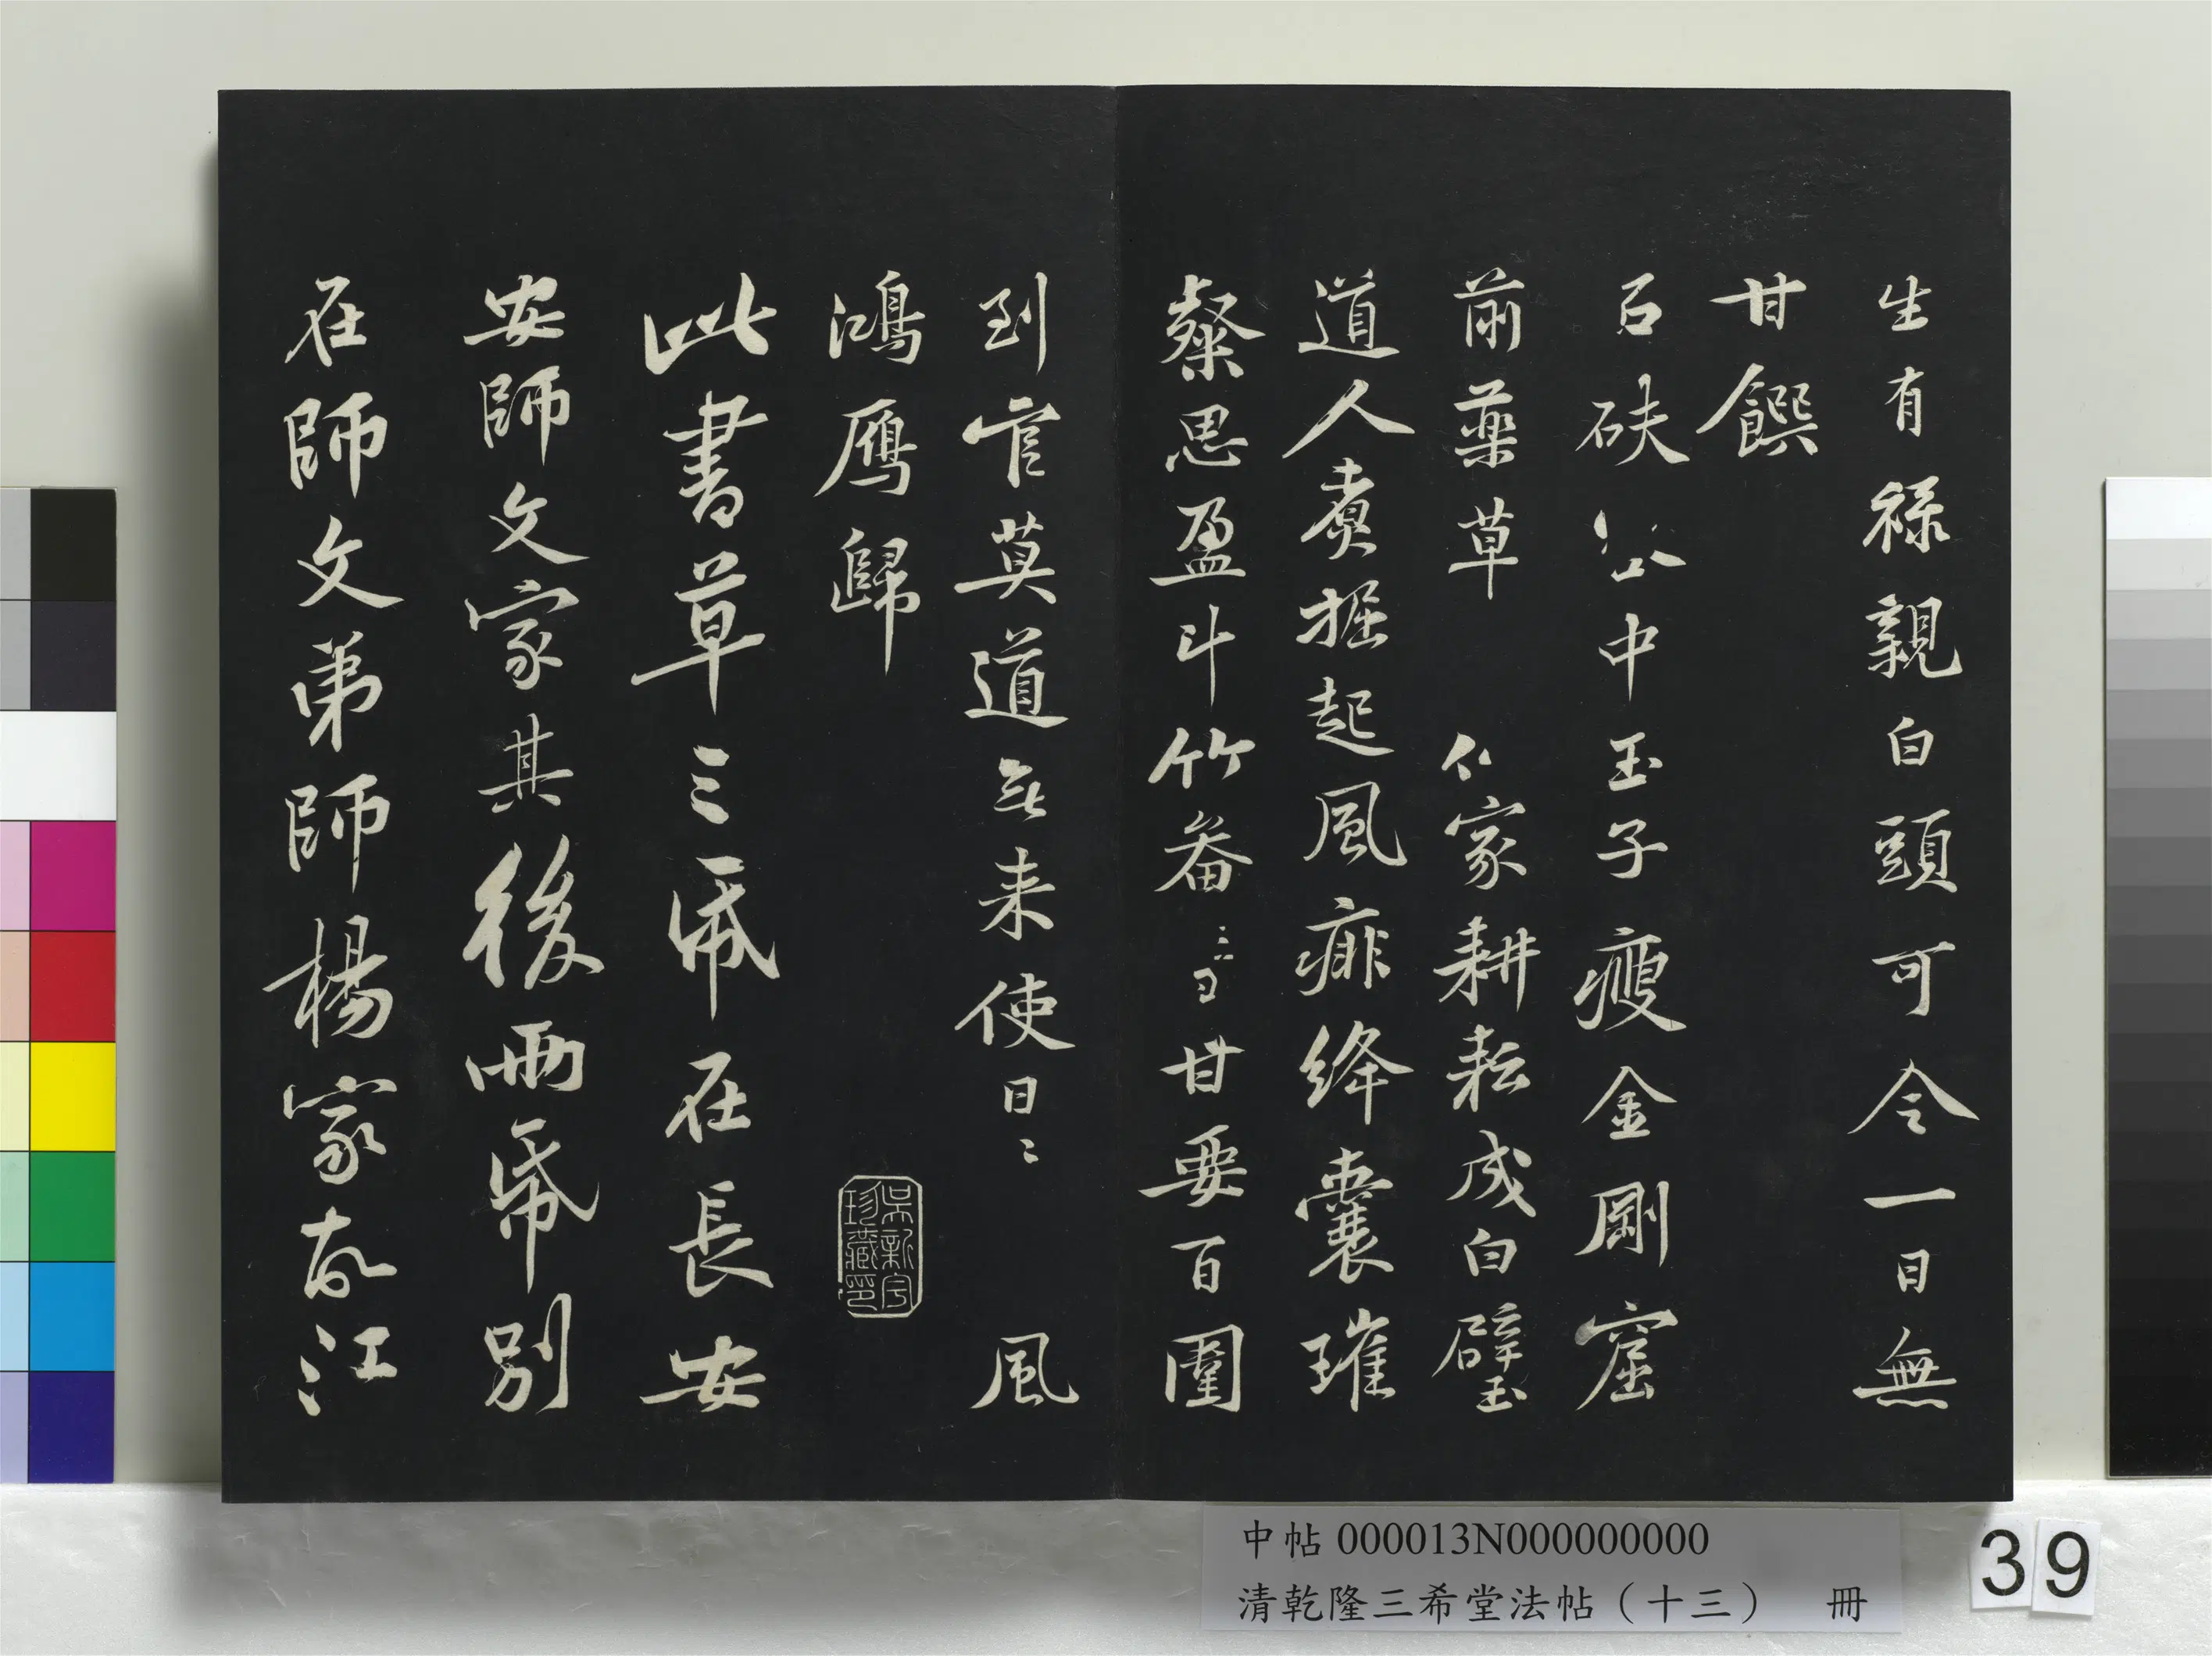 生有祿親白頭可令一日無
甘饌
石砆谷中玉子瘦金剛窟
前藥草　仁家耕耘成白璧
道人煮掘起風痱絳囊璀
粲思盈斗竹畚甘要百圍
到官莫道無来使日ミ　風
鴻鴈歸
此書草三帋在長安
安師文家其後兩帋別
在師文弟師楊家故江
珍藏印
中帖 000013N000000000
清乾隆三希堂法帖（十三）　冊
39